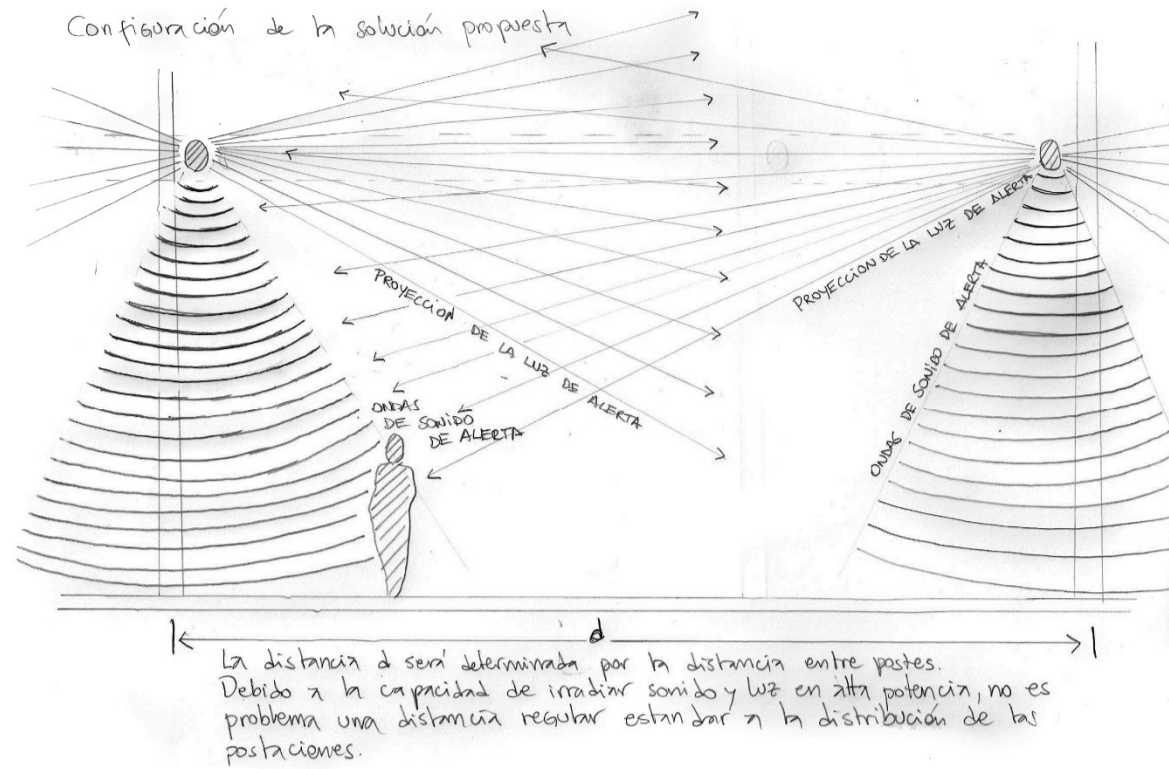 Configuración de la solución propuesta
PROYECCION DE LA LUZ DE ALERTA
PROYECCION DE LA LUZ DE ALERTA
ONDAS
DE SONIDO
DE ALERTA
ONDAS DE SONIDO DE ALERTA
d
La distancia d será determinada por la distancia entre postes.
Debido a la capacidad de irradiar sonido y luz en alta potencia, no es
problema una distancia regular estandar a la distribución de las
postaciones.